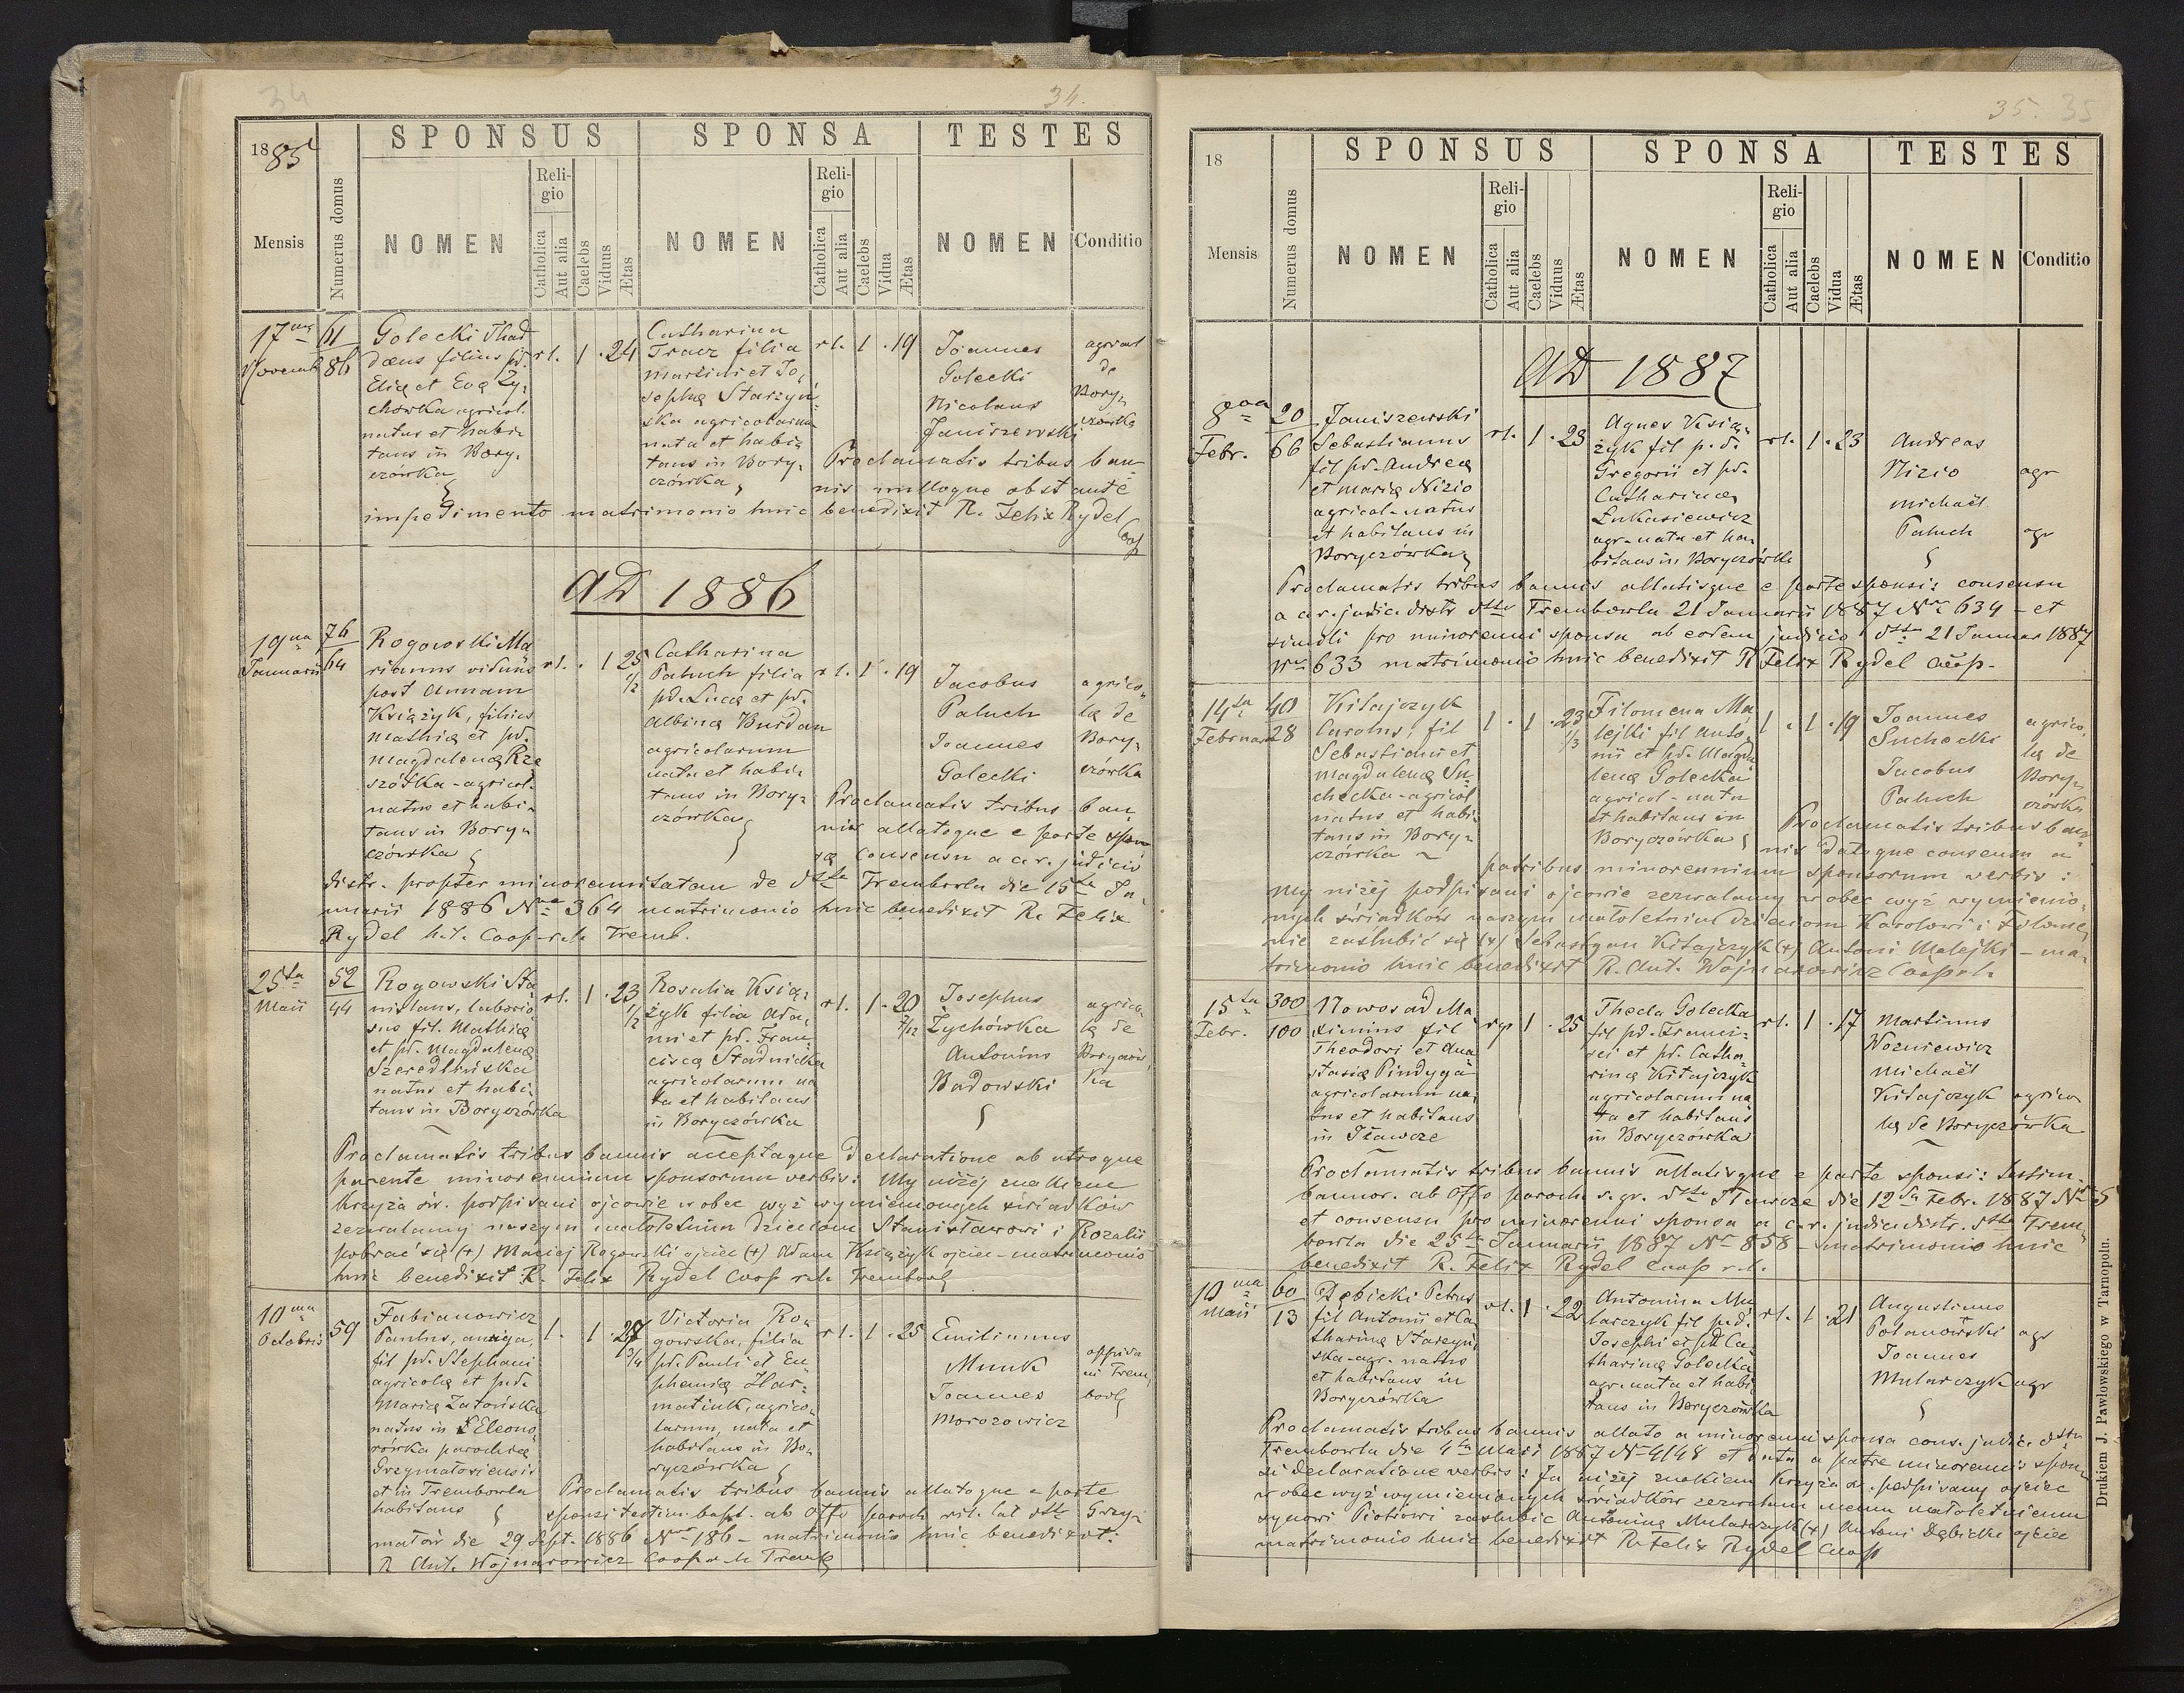 34
34.
1885
SPONSUS
SPONSA
TESTES
Mensis
Numerus domus
NOMEN
Religio
Catholica
Aut alia
Caelebs
Viduus
Ætas
NOMEN
Religio
Catholica
Aut alia
Caelebs
Vidua
Ætas
NOMEN
Conditio
17
Novemb
61
86
Golecki Thad
daeus filius pd.
Eliae et Eva Ży-
chowka agricol.
natus et habi-
tans in Bory-
czówka
rl. 1 24
Catharina
Tracz filia
Martini et Jo-
sepha Starzyń-
ska agricolarum
nata et habi-
tans in Bory-
czówka
rl. 1 19
Joannes
Golecki
Nicolaus
Janiszewski
agricol
de
Bory-
czówka
Proclamatis tribus ban-
nis nulloque obstante
impedimento matrimonio huic benedixit R. Felix Rydel
Coop
AD 1886
19na
Januarii
76
64
Rogowski Ma
rianus viduus
post Annam
Książyk, filius
Mathiae et pd.
Magdalena Rze
szótka - agricol.
natus et habi-
tans in Bory-
czówka
rl. 1 25 1/2
Catharina
Paluch filia
pd. Luca et pd.
Albina Burdan
agricolarum
nata et habi-
tans in Bory-
czówka
rl. 1 19
Jacobus
Paluch
Joannes
Golecki
agrico-
lae de
Bory-
czówka
Proclamatis tribus ban-
nis allatoque e parte spon
sae consensu a c.r. judicio
distr. propter minorennitatem de dtto Trembowla die 15ta Ja-
nuarii 1886 Nro 364 matrimonio huic benedixit R. Felix
Rydel h.t. Coop r.l. Tremb.
25ta
Maii
52
44
Rogowski Sta
nislaus, laborio
sus fil. Mathiae
et pd. Magdalena
Szeredlińska
natus et habi-
tans in Boryczówka
rl. 1 23 1/2
Rosalia Ksią-
żyk filia Ada-
mi et pd. Fran-
cisca Stadnicka
agricolarum na
ta et habitans
in Boryczówka
rl. 1 20 7/12
Josephus
Żychówka
Antonius
Badowski
agrico
lae de
Boryczów
ka
Proclamatis tribus bannis acceptaque declaratione ab utroque
parente minorennium sponsorum verbis: My niżej znakiem
krzyża św. podpisani ojcowie wobec wyż wymienionych świadków
zezwalamy naszym małoletnim dzieciom Stanisławowi i Rozalii
pobrać się (+) Maciej Rogowski ojciec (+) Adam Książyk ojciec - matrimonio
huic benedixit R. Felix Rydel Coop r.l. Trembowl
10ma
Octobris
59
Fabianowicz
Paulus, auriga,
fil pd. Stephani
agricola et pd.
Maria Zatońska
natus in Eleono-
rówka parochiae
Grzymałoviensis
et in Trembowla
habitans
l. 1 27 3/4
Victoria Ro-
gowska, filia
pd. Pauli et Eu-
phemia Har-
matiuk, agrico-
larum, nata et
habitans in Bo-
ryczówka
rl. 1 25
Emilianus
Munk
Joannes
Morozowicz
oppida
ni Trem
bowl
Proclamatis tribus bannis allatoque e parte
sponsi testim. bapt. ab Offo paroch rit. lat dtto Grzy-
małów die 29 Sept. 1886 Nro 186 - matrimonio huic benedixit.
R Ant. Wojnarowicz Coop r.l. Tremb
35. 35
18
SPONSUS
SPONSA
TESTES
Mensis
Numerus domus
NOMEN
Religio
Catholica
Aut alia
Caelebs
Viduus
Ætas
NOMEN
Religio
Catholica
Aut alia
Caelebs
Vidua
Ætas
NOMEN
Conditio
AD 1887
8
Febr.
20
66
Janiszewski
Sebastianus
fil pd. Andrea
et Maria Nizio
agricol - natus
et habitans in
Boryczówka
rl. 1 23
Agnes Ksią-
żyk fil p.d.
Gregorii et pd.
Catharinae
Łukasiewicz
agr - nata et ha
bitans in Boryczówka
rl. 1 23
Andreas
Nizio agr
Michaël
Paluch agr
Proclamatis tribus bannis allatisque e parte sponsi: consensu
a c.r. judic. distr dtto Trembowla 21 Januarii 1887 Nro 634 - et
simili pro minorenni sponsa ab eodem judicio dtto 21 Januar 1887
Nro 633 matrimonio huic benedixit R Felix Rydel Coop.
14ta
Februar
40
28
Kitajczyk
Carolus, fil
Sebastiani et
Magdalena Su
checka - agricol
natus et habi-
tans in Bory-
czówka
1 1 23 1/3
Filomena Ma
lejki fil Anto-
nii et pd. Magda
lena Golecka
agricol - nata
et habitans in
Boryczówka
1 1 19
Joannes
Suchecki
Jacobus
Paluch
agrico
lae de
Bory-
czówka
Proclamatis tribus ban-
nis datoque consensu a
patribus minorennium sponsorum verbis:
My niżej podpisani ojcowie zezwalamy wobec wyż wymienio-
nych świadków naszym małoletnim dzieciom Karolowi i Filome-
nie zaślubić się (+) Sebastyan Kitajczyk (+) Antoni Malejki - ma-
trimonio huic benedixit R. Ant. Wojnarowicz Coop r.l.
15ta
Febr.
300
100
Nowosad Ma
ximius fil
Theodori et Ana
stasia Pindyga
agricolarum na-
tus et habitans
in Iławcze
rg 1 25
Thecla Golecka
fil pd. Franci-
sci et pd. Catha
rina Kitajczyk
agricolarum na
ta et habitans
in Boryczówka
rl. 1 17
Martinus
Wozniewicz
Michaël
Kitajczyk agrico
lae de Boryczówka
Proclamatis tribus bannis allatisque e parte sponsi: testim.
bannor. ab Offo paroch r. gr. dtto Iławcze die 12ta Febr. 1887 Nro 5
et consensu pro minorenni sponsa a c.r. judic distr. dtto Trem
bowla die 25ta Januarii 1887 Nr 858 - matrimonio huic
benedixit R. Felix Rydel Coop r.l.
10ma
Maii
60
13
Dębicki Petrus
fil Antonii et Ca
tharina Starzyń
ska - agr - natus
et habitans in
Boryczówka
rl. 1 22
Antonina Mu
larczyk fil pd.
Josephi et pd Ca-
tharina Golecka
agr. nata et habi
tans in Boryczówka
rl. 1 21
Augustinus
Potanowski agr
Joannes
Mularczyk agr
Proclamatis tribus bannis allato a minorenni sponsa cons. judic. dtto
Trembowla die 4ta Maii 1887 N 4148 et data a patre minorennis spon
si declaratione verbis: Ja niżej znakiem krzyża św. podpisany ojciec
wobec wyż wymienionych świadków zezwalam memu małoletniemu
synowi Piotrowi zaślubić Antoninę Mularczyk (+) Antoni Dębicki ojciec
matrimonio huic benedixit R. Felix Rydel Coop
Drukiem J. Pawłowskiego w Tarnopolu.